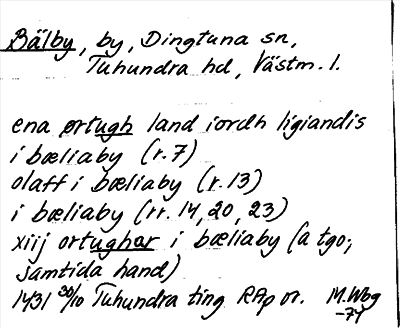 Bälby, by, Dingtuna sn,
Tuhundra hd, Västm. l.
ena ørtugh land iordh ligiandis
i bæliaby (r. 7)
olaff i bæliaby (r. 13)
i bæliaby (rr. 14, 20, 23)
xiij ortughar i bæliaby (a tgo;
samtida hand)
1431 30/10 Tuhundra ting RAp or. M. Wbg
-74